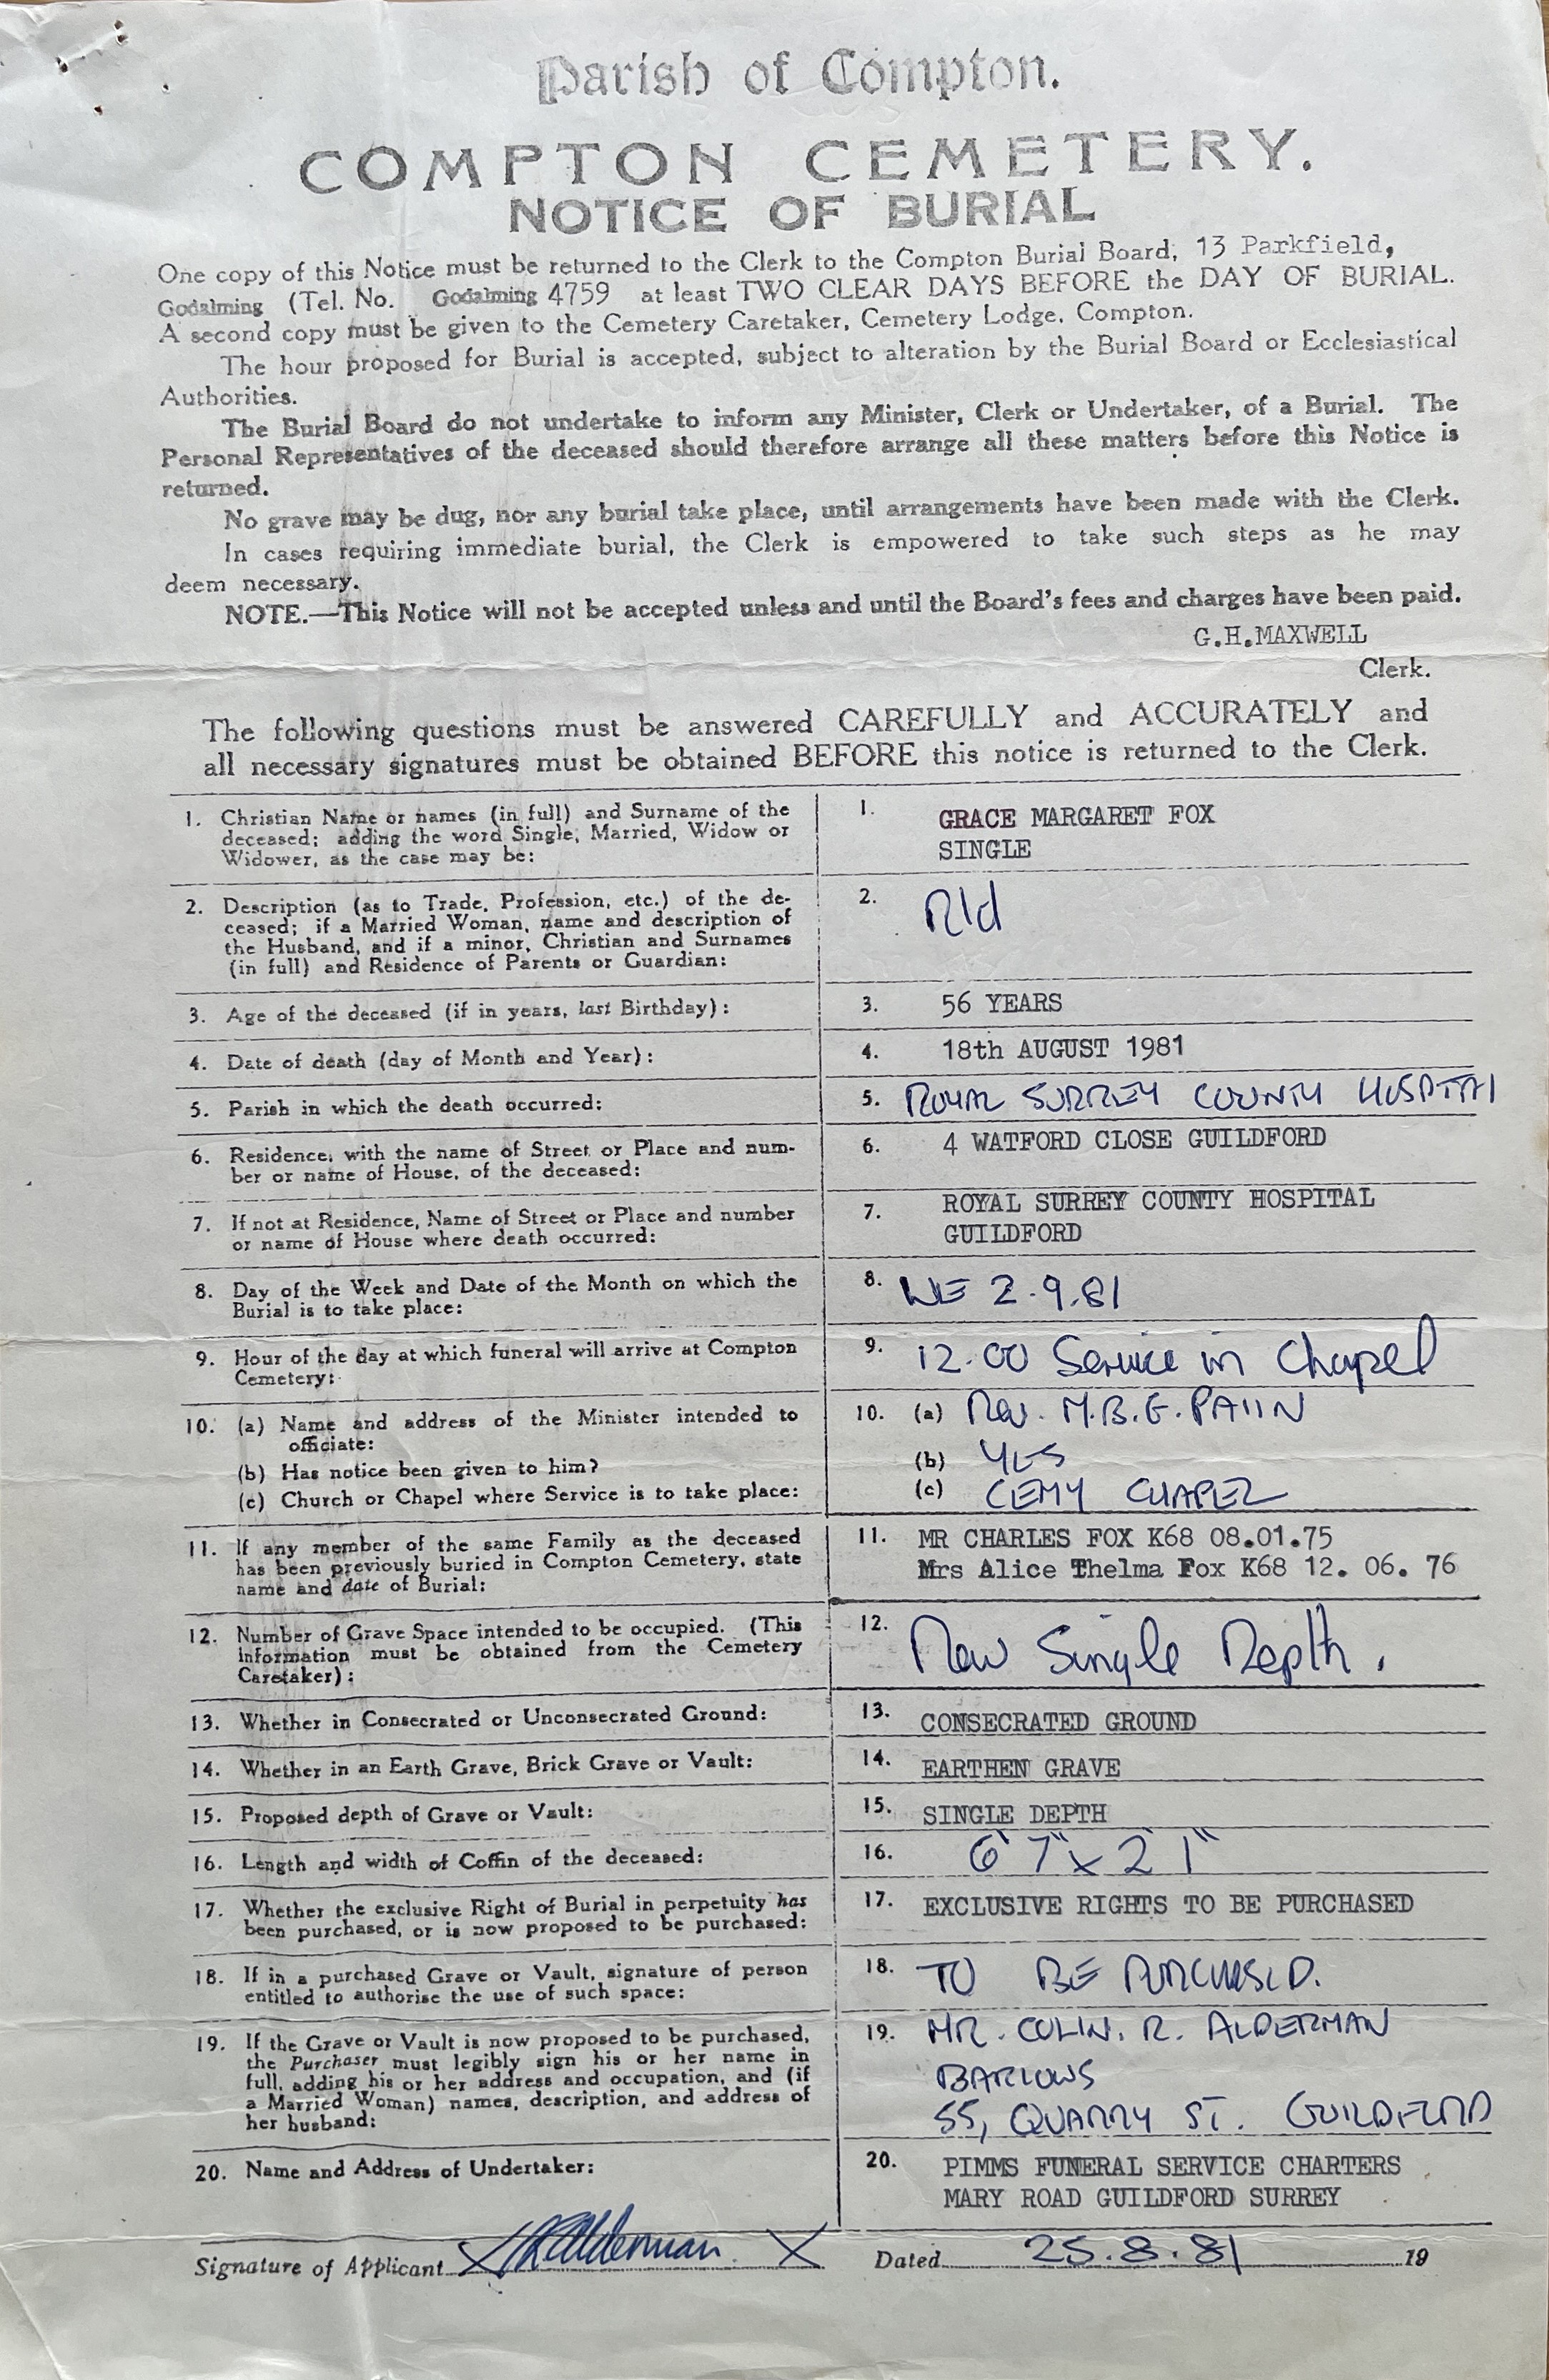 Parish of Compton.
COMPTON CEMETERY.
NOTICE OF BURIAL
One copy of this Notice must be returned to the Clerk to the Compton Burial Board, 13 Parkfield,
Godalming (Tel. No. Godalming 4759 at least TWO CLEAR DAYS BEFORE the DAY OF BURIAL.
A second copy must be given to the Cemetery Caretaker, Cemetery Lodge, Compton.
The hour proposed for Burial is accepted, subject to alteration by the Burial Board or Ecclesiastical
Authorities.
The Burial Board do not undertake to inform any Minister, Clerk or Undertaker, of a Burial. The
Personal Representatives of the deceased should therefore arrange all these matters before this Notice is
returned.
No grave may be dug, nor any burial take place, until arrangements have been made with the Clerk.
In cases requiring immediate burial, the Clerk is empowered to take such steps as he may
deem necessary.
NOTE.—This Notice will not be accepted unless and until the Board's fees and charges have been paid.
G.H.MAXWELL
Clerk.
The following questions must be answered CAREFULLY and ACCURATELY and
all necessary signatures must be obtained BEFORE this notice is returned to the Clerk.
1. Christian Name or names (in full) and Surname of the
deceased; adding the word Single, Married, Widow or
Widower, as the case may be:
1. GRACE MARGARET FOX
SINGLE
2. Description (as to Trade, Profession, etc.) of the de-
ceased; if a Married Woman, name and description of
the Husband, and if a minor, Christian and Surnames
(in full) and Residence of Parents or Guardian:
2. R/d
3. Age of the deceased (if in years, last Birthday):
3. 56 YEARS
4. Date of death (day of Month and Year):
4. 18th AUGUST 1981
5. Parish in which the death occurred:
5. ROYAL SURREY COUNTY HOSPITAL
6. Residence, with the name of Street or Place and num-
ber or name of House, of the deceased:
6. 4 WATFORD CLOSE GUILDFORD
7. If not at Residence, Name of Street or Place and number
or name of House where death occurred:
7. ROYAL SURREY COUNTY HOSPITAL
GUILDFORD
8. Day of the Week and Date of the Month on which the
Burial is to take place:
8. WE 2.9.81
9. Hour of the day at which funeral will arrive at Compton
Cemetery:
9. 12.00 Service in Chapel
10. (a) Name and address of the Minister intended to
officiate:
(b) Has notice been given to him?
(c) Church or Chapel where Service is to take place:
10. (a) Rev. M.B.G.
(b) YES
(c) CEMY CHAPEL
11. If any member of the same Family as the deceased
has been previously buried in Compton Cemetery, state
name and date of Burial:
11. MR CHARLES FOX K68 08.01.75
Mrs Alice Thelma Fox K68 12. 06. 76
12. Number of Grave Space intended to be occupied. (This
information must be obtained from the Cemetery
Caretaker):
12. New Single Depth.
13. Whether in Consecrated or Unconsecrated Ground:
13. CONSECRATED GROUND
14. Whether in an Earth Grave, Brick Grave or Vault:
14. EARTHEN GRAVE
15. Proposed depth of Grave or Vault:
15. SINGLE DEPTH
16. Length and width of Coffin of the deceased:
16. 6' 7" x 2' 1"
17. Whether the exclusive Right of Burial in perpetuity has
been purchased, or is now proposed to be purchased:
17. EXCLUSIVE RIGHTS TO BE PURCHASED
18. If in a purchased Grave or Vault, signature of person
entitled to authorise the use of such space:
18. TO BE PURCHASED.
19. If the Grave or Vault is now proposed to be purchased,
the Purchaser must legibly sign his or her name in
full, adding his or her address and occupation, and (if
a Married Woman) names, description, and address of
her husband:
19. MR. COLIN. R. ALDERMAN
BARLOWS
55, QUARRY ST. GUILDFORD
20. Name and Address of Undertaker:
20. PIMMS FUNERAL SERVICE CHARTERS
MARY ROAD GUILDFORD SURREY
Signature of Applicant X CRAlderman X Dated 25.8.81 19